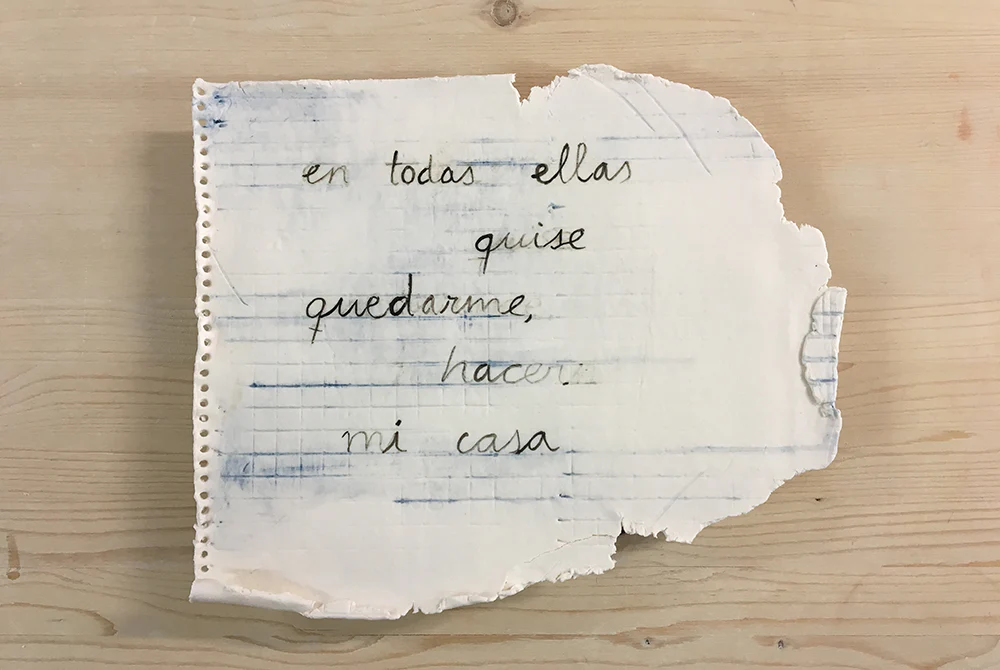 en todas ellas
quise
quedarme,
hacer
mi casa